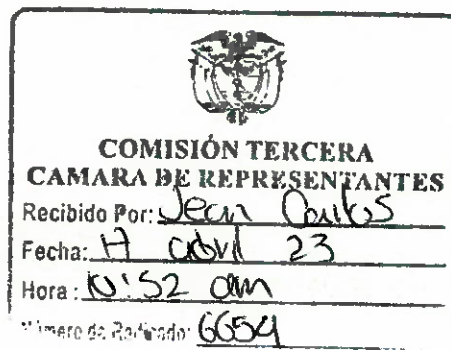 COMISIÓN TERCERA
CAMARA DE REPRESENTANTES
Recibido Por: Jean Carlos
Fecha: abril 23
Hora: 10:52 am
Número de Radicado: 6654